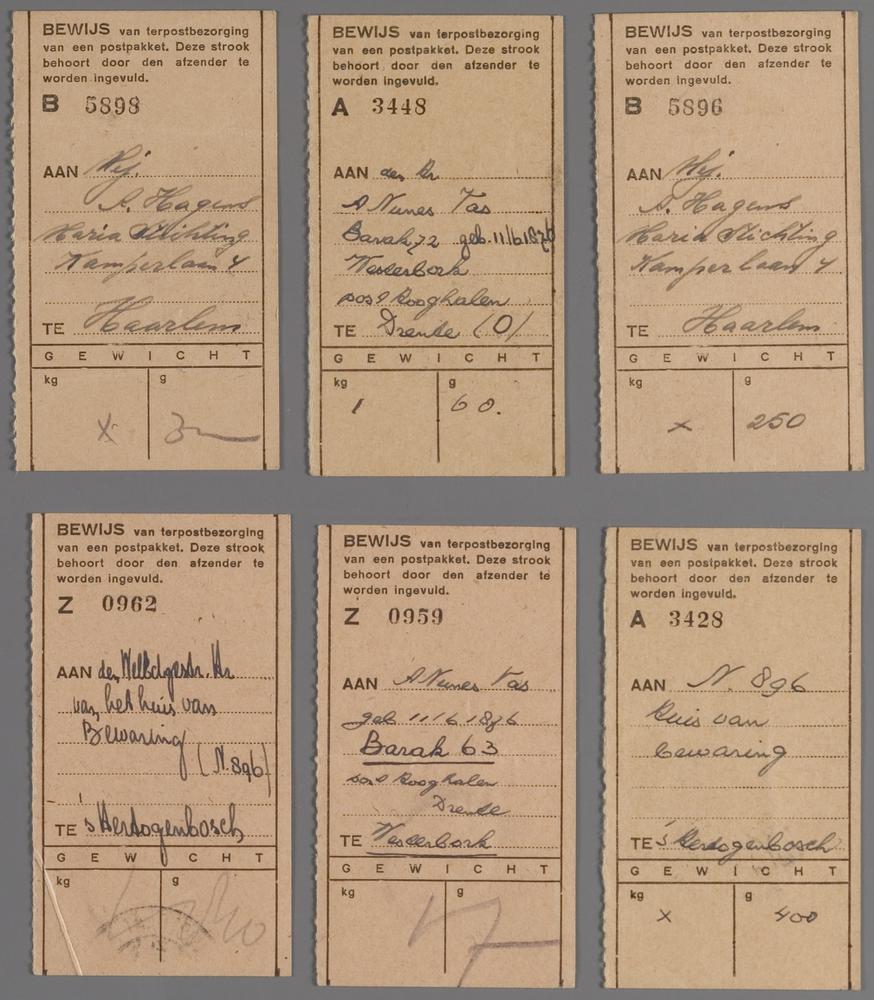 BEWIJS van terpostbezorging
van een postpakket. Deze strook
behoort door den afzender te
worden ingevuld.
B 5898
AAN Wij.
A. Hagens
Maria Stichting
Kamperlaan 4
TE Haarlem
GEWICHT
kg g
x
BEWIJS van terpostbezorging
van een postpakket. Deze strook
behoort door den afzender te
worden ingevuld.
A 3448
AAN den Hr
A Nunes Vas
Barak 72 geb. 11/6 1876
Westerbork
post Hooghalen
TE Drente (O)
GEWICHT
kg g
1 60.
BEWIJS van terpostbezorging
van een postpakket. Deze strook
behoort door den afzender te
worden ingevuld.
B 5896
AAN Wij.
A. Hagens
Maria Stichting
Kamperlaan 4
TE Haarlem
GEWICHT
kg g
x 250
BEWIJS van terpostbezorging
van een postpakket. Deze strook
behoort door den afzender te
worden ingevuld.
Z 0962
AAN den Weledgestr. Hr
van het huis van
Bewaring
(N. 896)
TE 's Hertogenbosch
GEWICHT
kg g
BEWIJS van terpostbezorging
van een postpakket. Deze strook
behoort door den afzender te
worden ingevuld.
Z 0959
AAN A Nunes Vas
geb 11/6 1876
Barak 63
post Hooghalen
Drente
TE Westerbork
GEWICHT
kg g
BEWIJS van terpostbezorging
van een postpakket. Deze strook
behoort door den afzender te
worden ingevuld.
A 3428
AAN N. 896
Huis van
bewaring
TE 's Hertogenbosch
GEWICHT
kg g
x 400